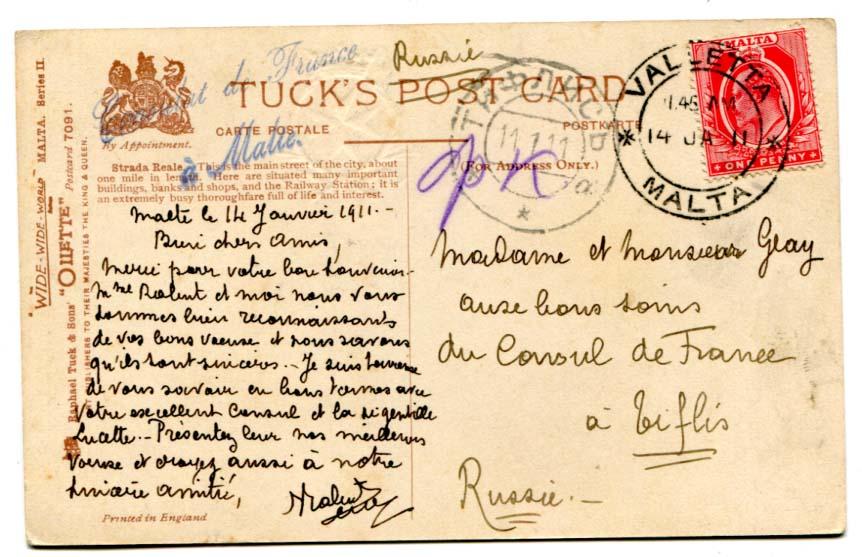 Consulat de France
à Malte.
Russie
TUCK'S POST CARD
By Appointment.
CARTE POSTALE
POSTKARTE
(FOR ADDRESS ONLY.)
Strada Reale. This is the main street of the city, about
one mile in length. Here are situated many important
buildings, banks and shops, and the Railway Station; it is
an extremely busy thoroughfare full of life and interest.
"WIDE-WIDE-WORLD" MALTA. Series II.
Raphael Tuck & Sons' "OILETTE" Postcard 7091.
ART PUBLISHERS TO THEIR MAJESTIES THE KING & QUEEN.
MALTA
ONE PENNY
VALLETTA
.45 AM
14 JA 11
MALTA
ТИФЛИСЪ
11.1.11
Malte le 14 Janvier 1911.-
Bien chers amis,
Merci pour votre bon souvenir.
Mme et moi nous vous
sommes bien reconnaissants
de vos bons voeux et nous savons
qu'ils sont sincères.- Je suis heureux
de vous savoir en bons termes avec
votre excellent Consul et la si gentille
Lucette.- Présentez leur nos meilleurs
voeux et croyez aussi à notre
sincère amitié,
Madame et Monsieur
aux bons soins
du Consul de France
à Tiflis
Russie.-
Printed in England